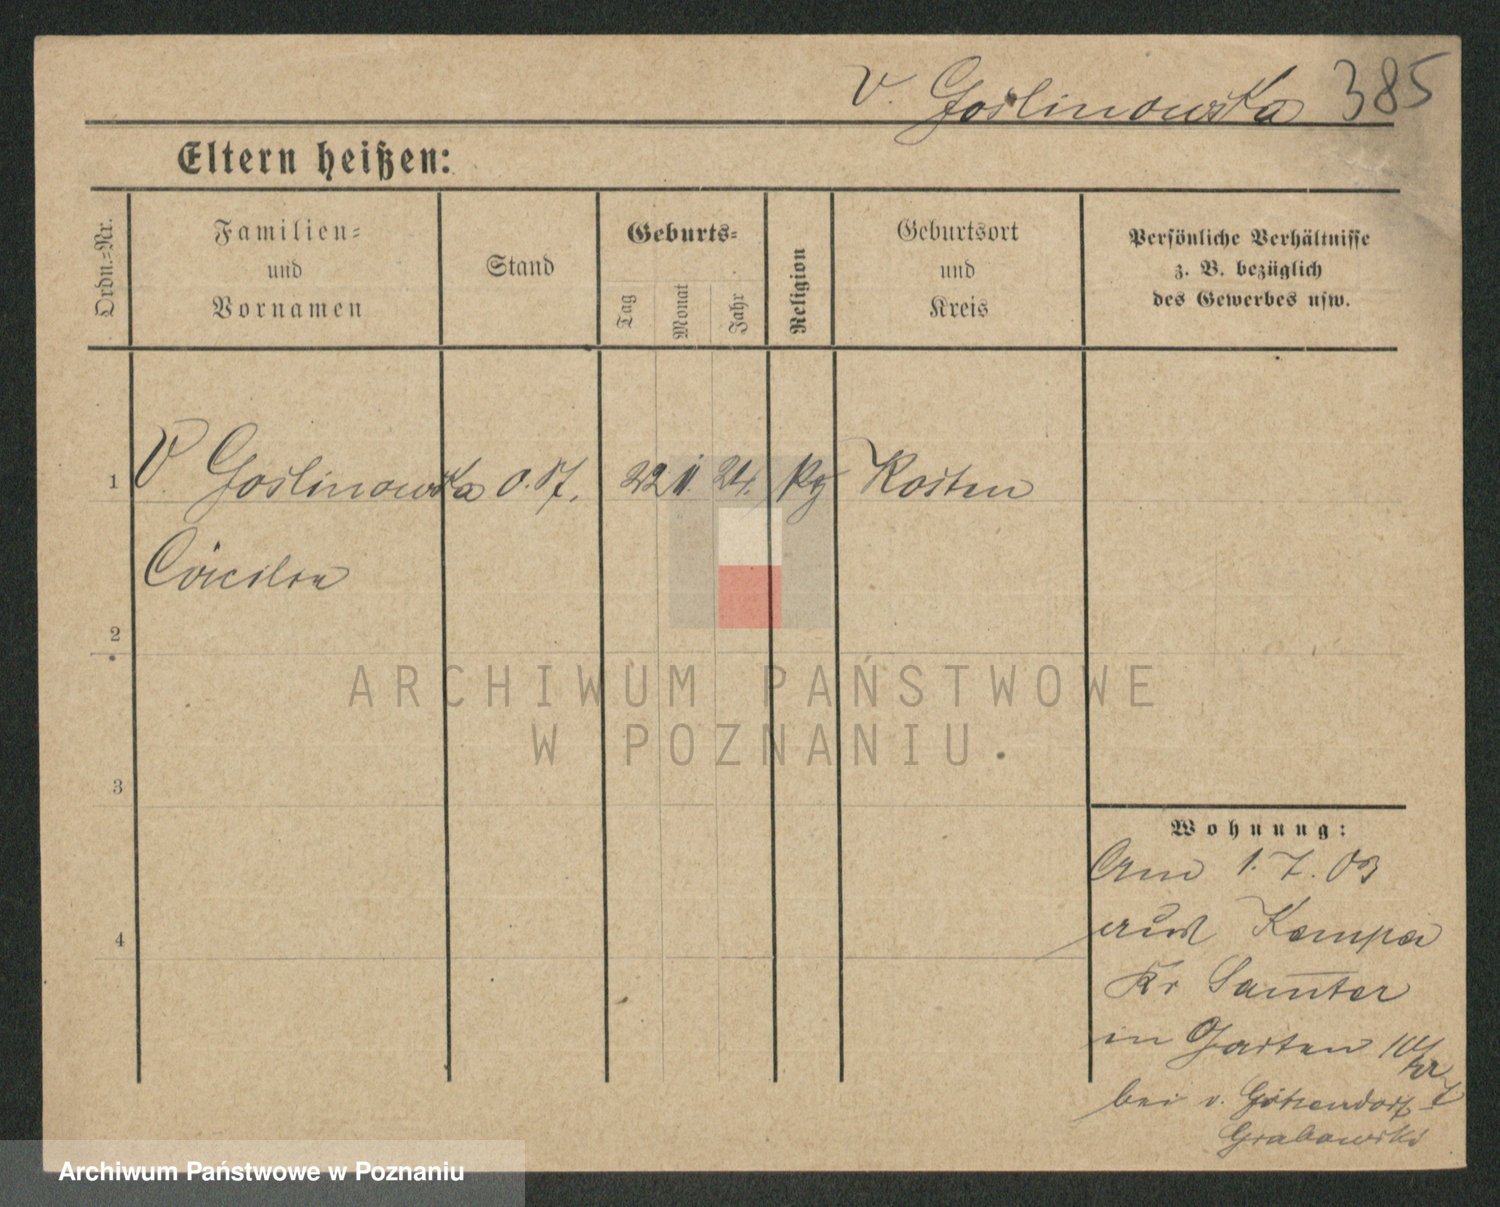 v. Goślinowska 385
Eltern heißen:
Ordn.-Nr.
Familien-
und
Vornamen
Stand
Geburts-
Tag
Monat
Jahr
Religion
Geburtsort
und
Kreis
Persönliche Verhältnisse
z. B. bezüglich
des Gewerbes usw.
1 v. Goślinowska o. St. 22 11. 24. Kosten
2
3
4
Wohnung:
Am 1. 7. 03
aus Kempa
Kr Samter
in Garten
bei v. Götzendorf-
Grabowski
ARCHIWUM PAŃSTWOWE
W POZNANIU
Archiwum Państwowe w Poznaniu